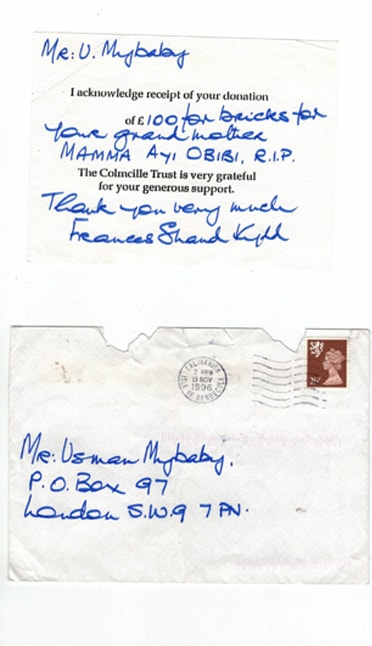 Mr: U. Mybaby
I acknowledge receipt of your donation
of £100 for bricks for
your grandmother
MAMMA AYI OBIBI, R.I.P.
The Colmcille Trust is very grateful
for your generous support.
Thank you very much
Frances Shand Kydd
2 PM
13 NOV
1996
Mr: Usman Mybaby,
P.O. Box 97
London S.W.9 7 PN.